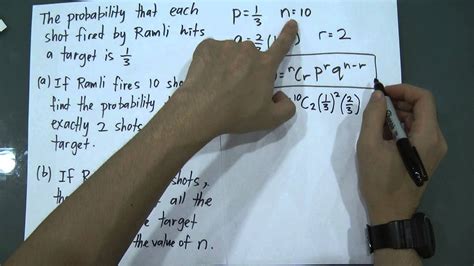 The probability that each
shot fired by Ramli hits
a target is 1/3
(a) If Ramli fires 10 s
find the probability
exactly 2 shots
target.
(b) If R shots,
th all the
target
the value of n.
p=1/3 n=10
q=2/3 r=2
= ⁿCᵣ pʳ qⁿ⁻ʳ
¹⁰C₂(1/3)²(2/3)